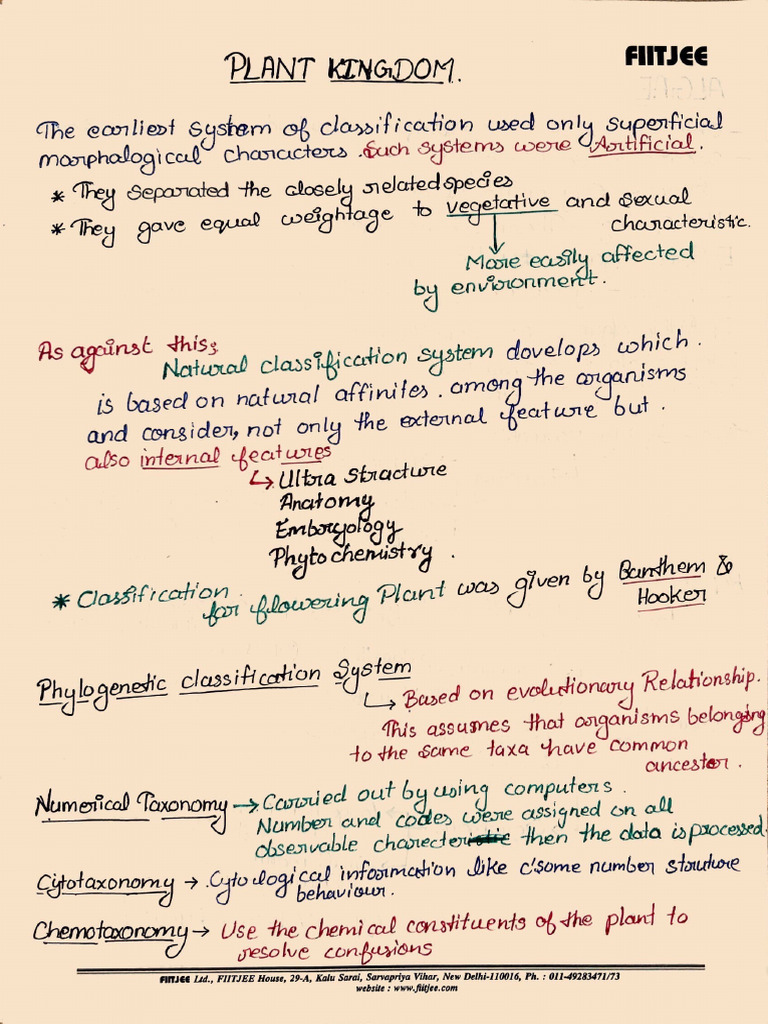 FIITJEE
PLANT KINGDOM.
The earliest system of classification used only superficial
morphalogical characters. Such systems were Artificial.
* They separated the closely related species
* They gave equal weightage to vegetative and sexual
characteristic.
More easily affected
by environment.
As against this;
Natural classification system dovelops which.
is based on natural affinites. among the organisms
and consider, not only the external feature but.
also internal features
↳ Ultra Stracture
Anatomy
Embryology
Phytochemistry.
* Classification.
for flowering Plant was given by Banthem &
Hooker
Phylogenetic classification System
↳ Based on evolutionary Relationship.
This assumes that organisms belonging
to the same taxa have common
ancestor.
Numerical Taxonomy → Carried out by using computers.
Number and codes were assigned on all
observable charecter then the data is processed.
Cytotaxonomy → Cytological information like c'some number struture
behaviour.
Chemotaxonomy → Use the chemical constituents of the plant to
resolve confusions
FIITJEE Ltd., FIITJEE House, 29-A, Kalu Sarai, Sarvapriya Vihar, New Delhi-110016, Ph. : 011-49283471/73
website : www.fiitjee.com